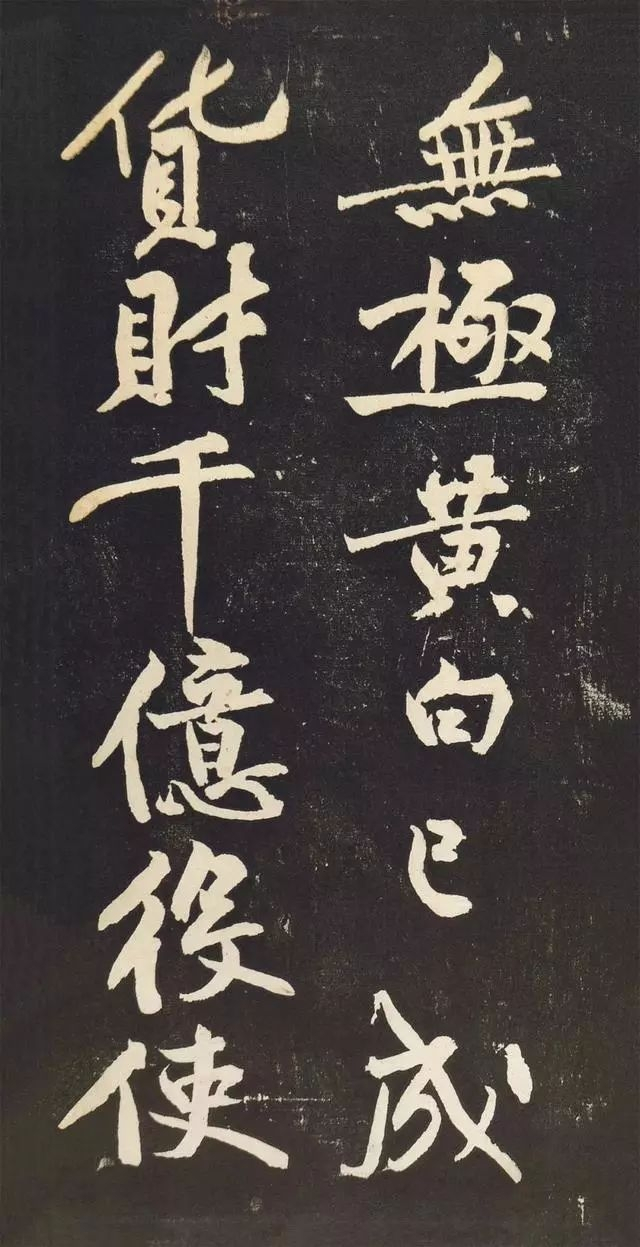 無極黃白已成
貨財千億役使